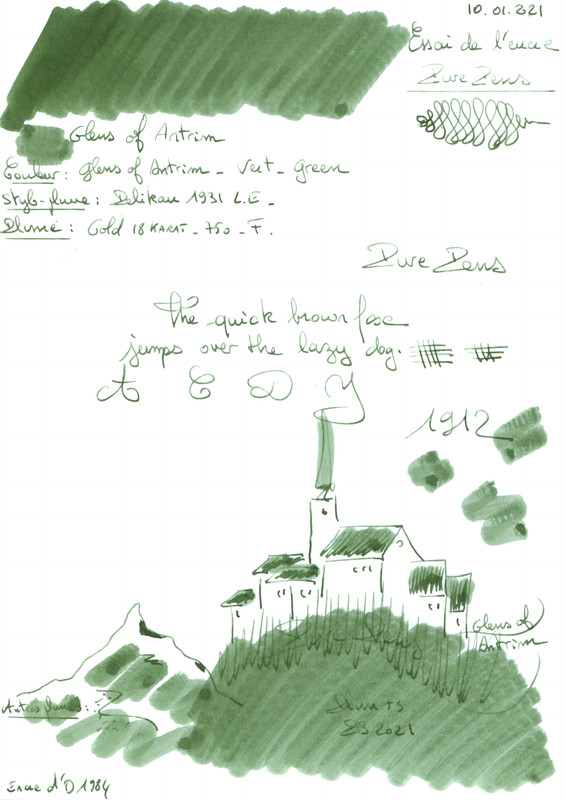 10.01.321
Essai de l'encre
Pure Pens
Glens of Antrim
Couleur: Glens of Antrim - Vert - green
Stylo-plume: Pelikan 1931 L.E -
Plume: Gold 18 KARAT - 750 - F.
Pure Pens
The quick brown fox
jumps over the lazy dog.
A C D Y
1912
Glens of
Antrim
Autres plumes:
2021
Encre d'O 1984